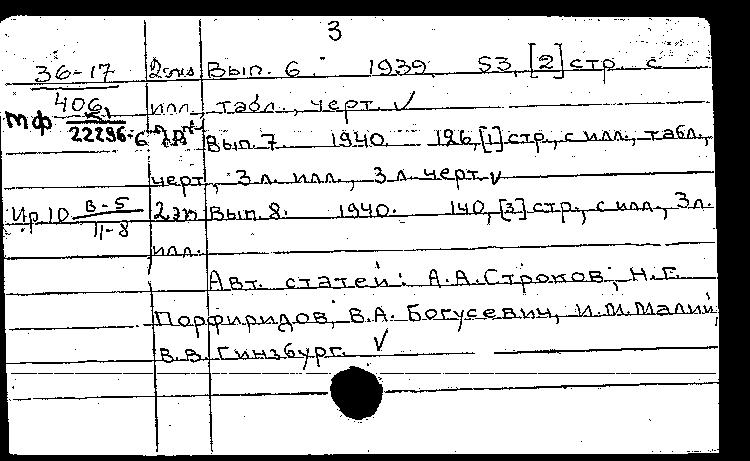 3
36-17 2экз Вып. 6. 1939. 53, [2] стр. с
406 илл., табл., черт. ✓
мф 22296-6 Вып. 7. 1940. 126, [1] стр., с илл., табл.,
черт., 3 л. илл., 3 л. черт. ✓
Up 10 В-5 / 11-8 2эк Вып. 8. 1940. 140, [3] стр., с илл., 3 л.
илл.
Авт. статей: А.А.Строков, Н.Г.
Порфиридов, В.А. Богусевич, И.М.Малий,
В.В. Гинзбург. ✓